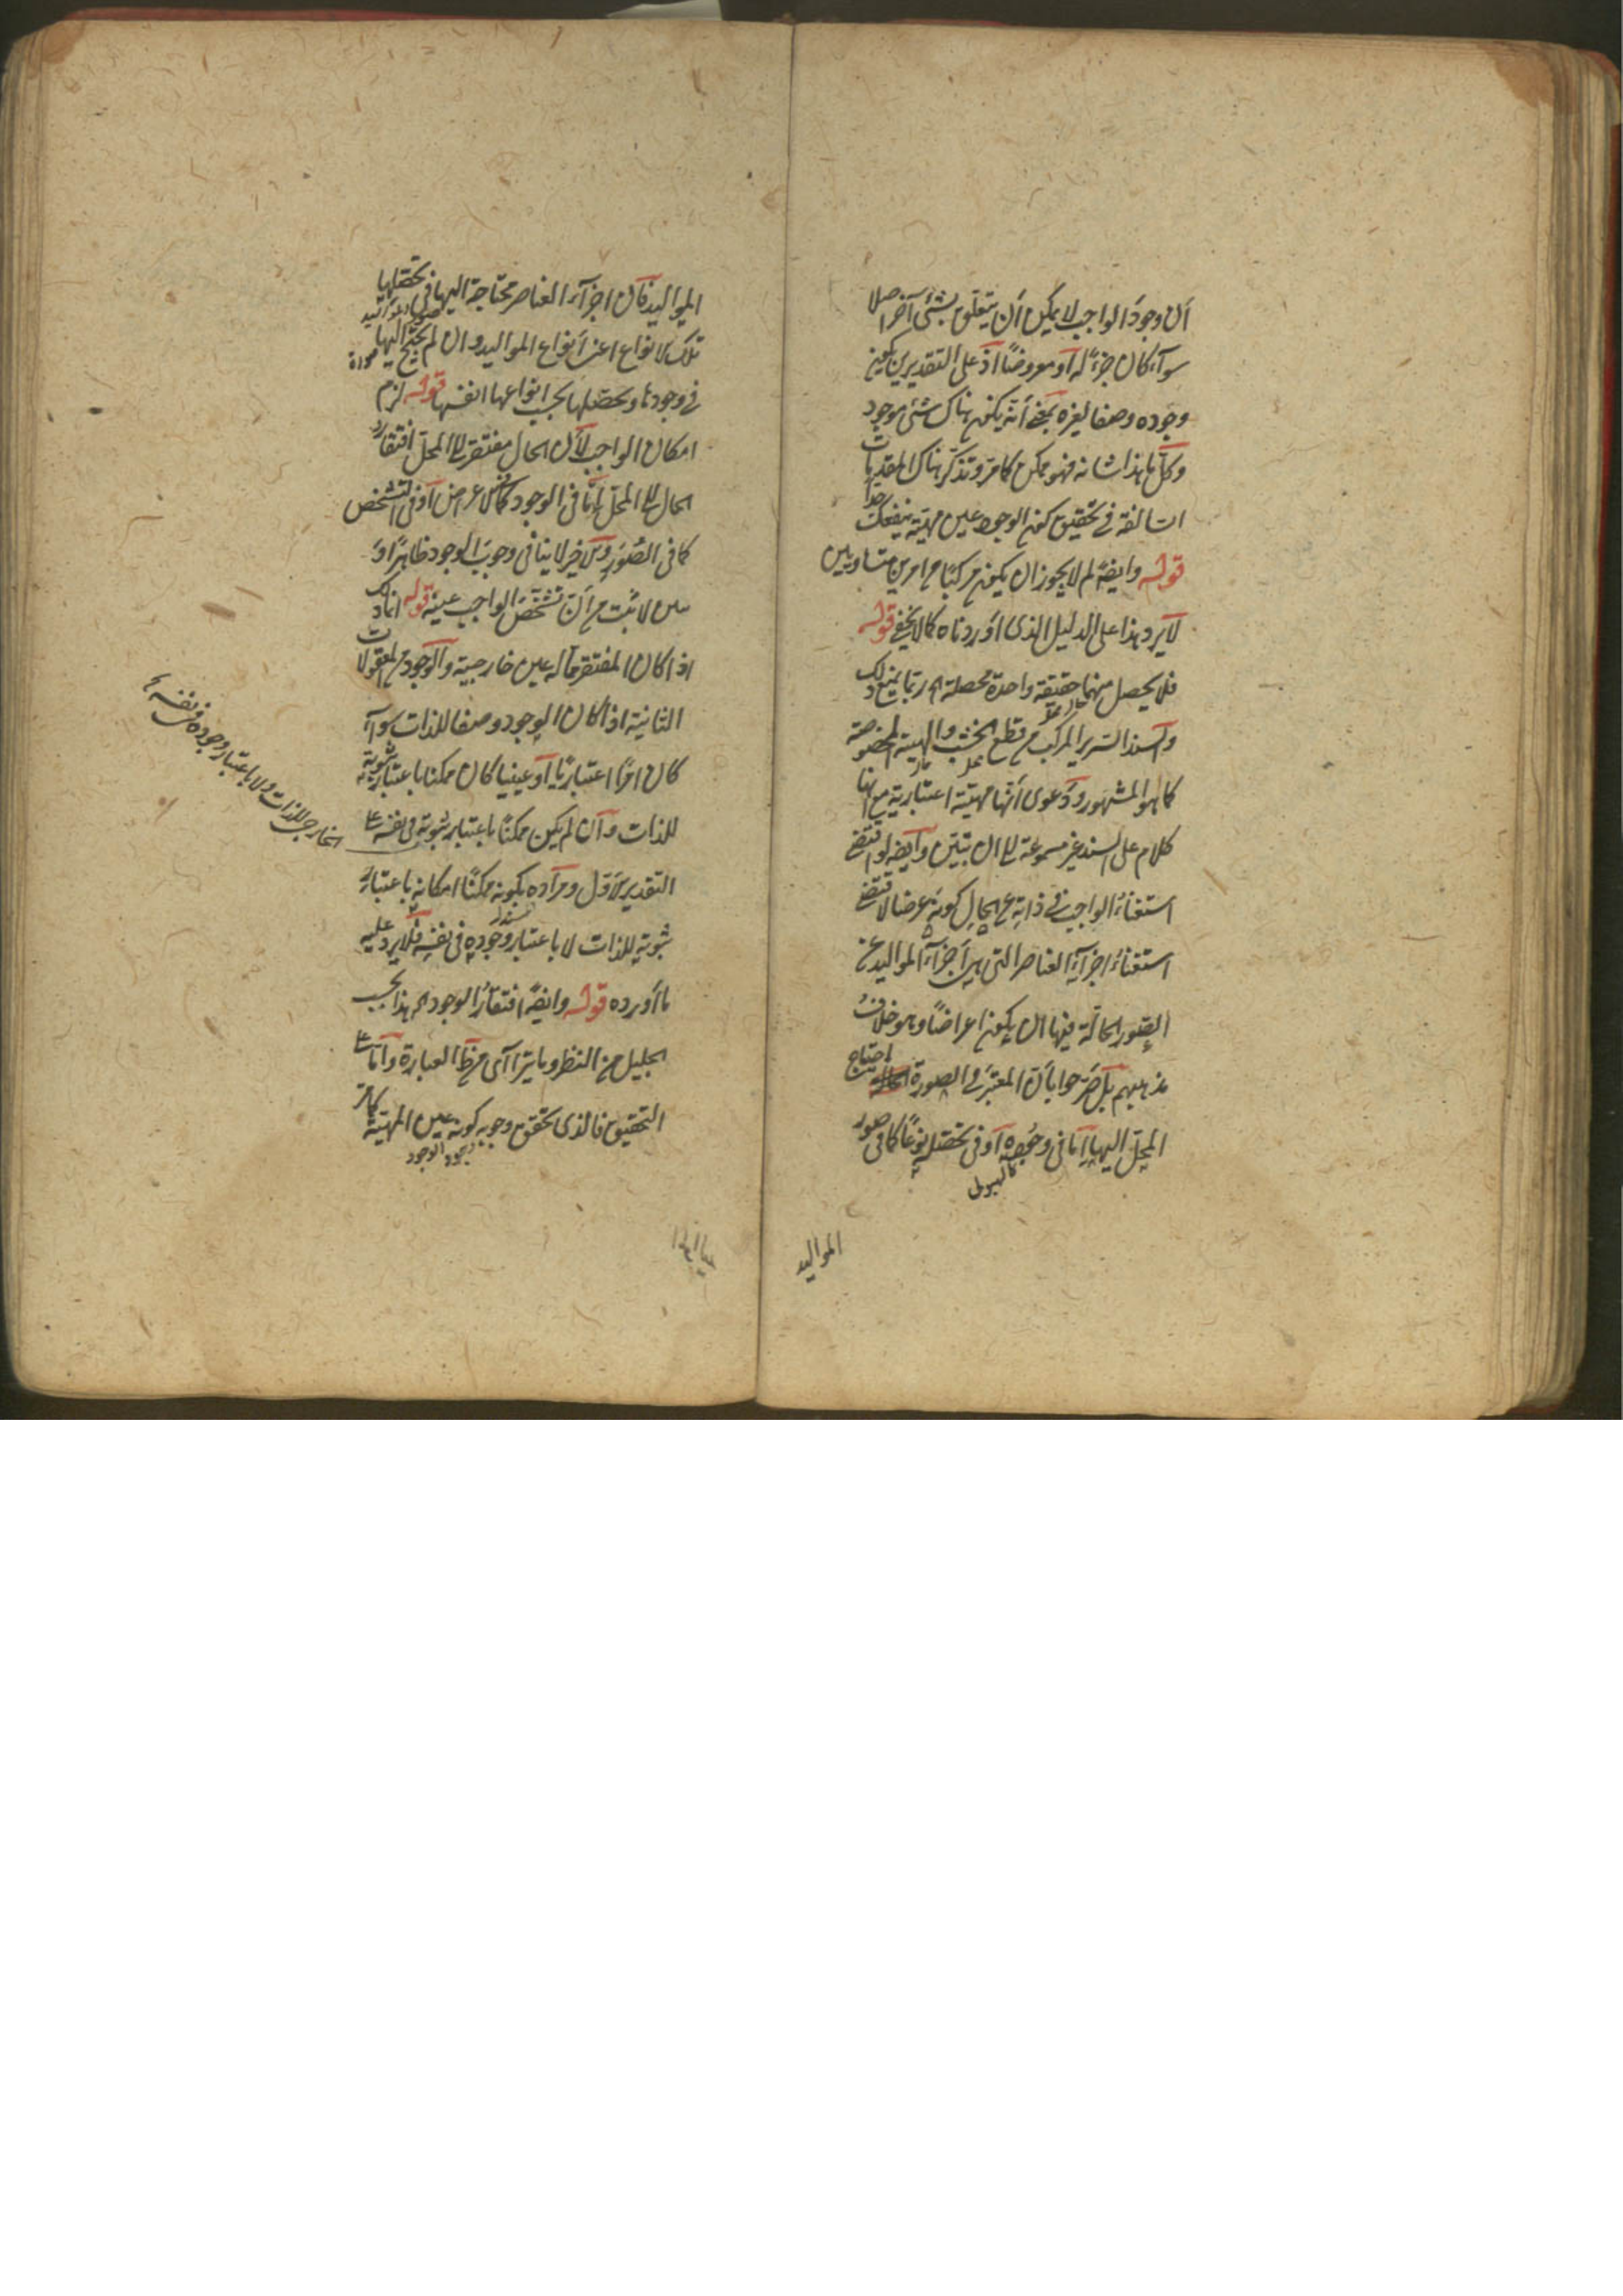 أن وجود الواجب لا يمكن أن يتعلق بشئ آخر اصلا
سوآء كان جزءً له أو معروضًا اذ على التقديرين يكون
وجوده وصفا لغيره بمعنى أنه يكون هناك شئ موجود
وكل ما هذا شانه فهو ممكن كما مرّ وتذكّر هناك المقدمات
السالفة في تحقيق كون الوجود عين مهيّته ينفعك جداً
قوله وايضًا لم لا يجوز ان يكون مركبًا من امرين متساويين
لا يرد هذا على الدليل الذى أوردناه كما لا يخفى قوله
فلا يحصل منهما حقيقة واحدة محصلة اه ربما يمنع ذلك
وآسند السرير المركب من قطع الخشب والهيئة المخصوصة
كما هو المشهور ودعوى أنها مهيّة اعتبارية مع انها
كلام على السند غير مسموعة الى ان يتبيّن وآيضا لو اقتضى
استغناءُ الواجب في ذاته عن الحالِ كونَه عرضا لاقتضى
استغناءُ اجزآءِ العناصر التى هي أجزآء المواليد عن
الصّور الحالّة فيها ان يكون اعراضًا وهو خلافُ
مذهبهم بل صرّحوا بأن المعتبر في الصورة احتياج
المحلّ اليها إمّا في وجوده أو في تحصّله نوعًا كما في صور
كالهيولى
المواليد
المواليد فان اجزآء العناصر محتاجة اليها في تحصّلها
تلك الانواع اعنى أنواع المواليد وان لم يحتج اليها
في وجودها وتحصّلها بحسب انواعها انفسها قوله لزم
امكان الواجب لأن الحال مفتقر الى المحلّ افتقارُ
الحال الى المحلّ إمّا في الوجود كما في الاعراض أو في التشخّص
كما في الصّور والاخير لا ينافي وجوبَ الوجود ظاهرًا و
لما ثبت من أن تشخّص الواجب عينه قوله انما ذلك
اذا كان المفتقر مما له عين خارجية والوجود من المعقولات
الثانية اذا كان الوجود وصفا للذات سوآء
كان امرًا اعتباريًا أو عينيا كان ممكنا باعتبار ثبوته
للذات وآن لم يكن ممكنًا باعتبار ثبوته في نفسه على
الخارج للذات ولا باعتبار وجوده في نفسه
التقدير الاول ومراده بكونه ممكنًا امكانه باعتبار
ثبوته للذات لا باعتبار وجوده في نفسه فلا يرد عليه
ما أورده قوله وايضًا افتقارُ الوجود اه هذا بحسب
الجليل من النظر وما يترا آى من ظ العبارة وآمّا على
التحقيق فالذى تحقق وجوبه كونه عين المهيّة كما مرّ
وجود الوجود